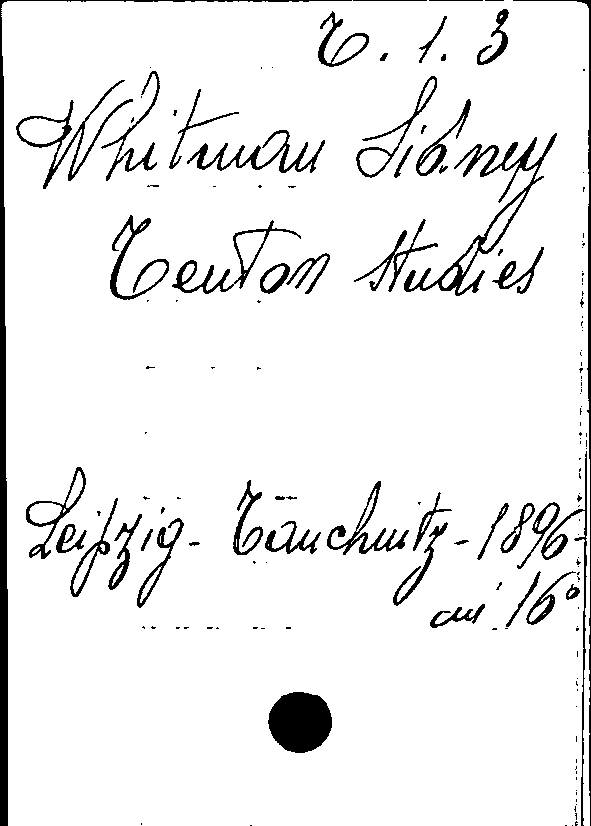 T. 1. 3
Whitman Sidney
Teuton Studies
Leipzig - Tauchnitz - 1896 -
in 16°